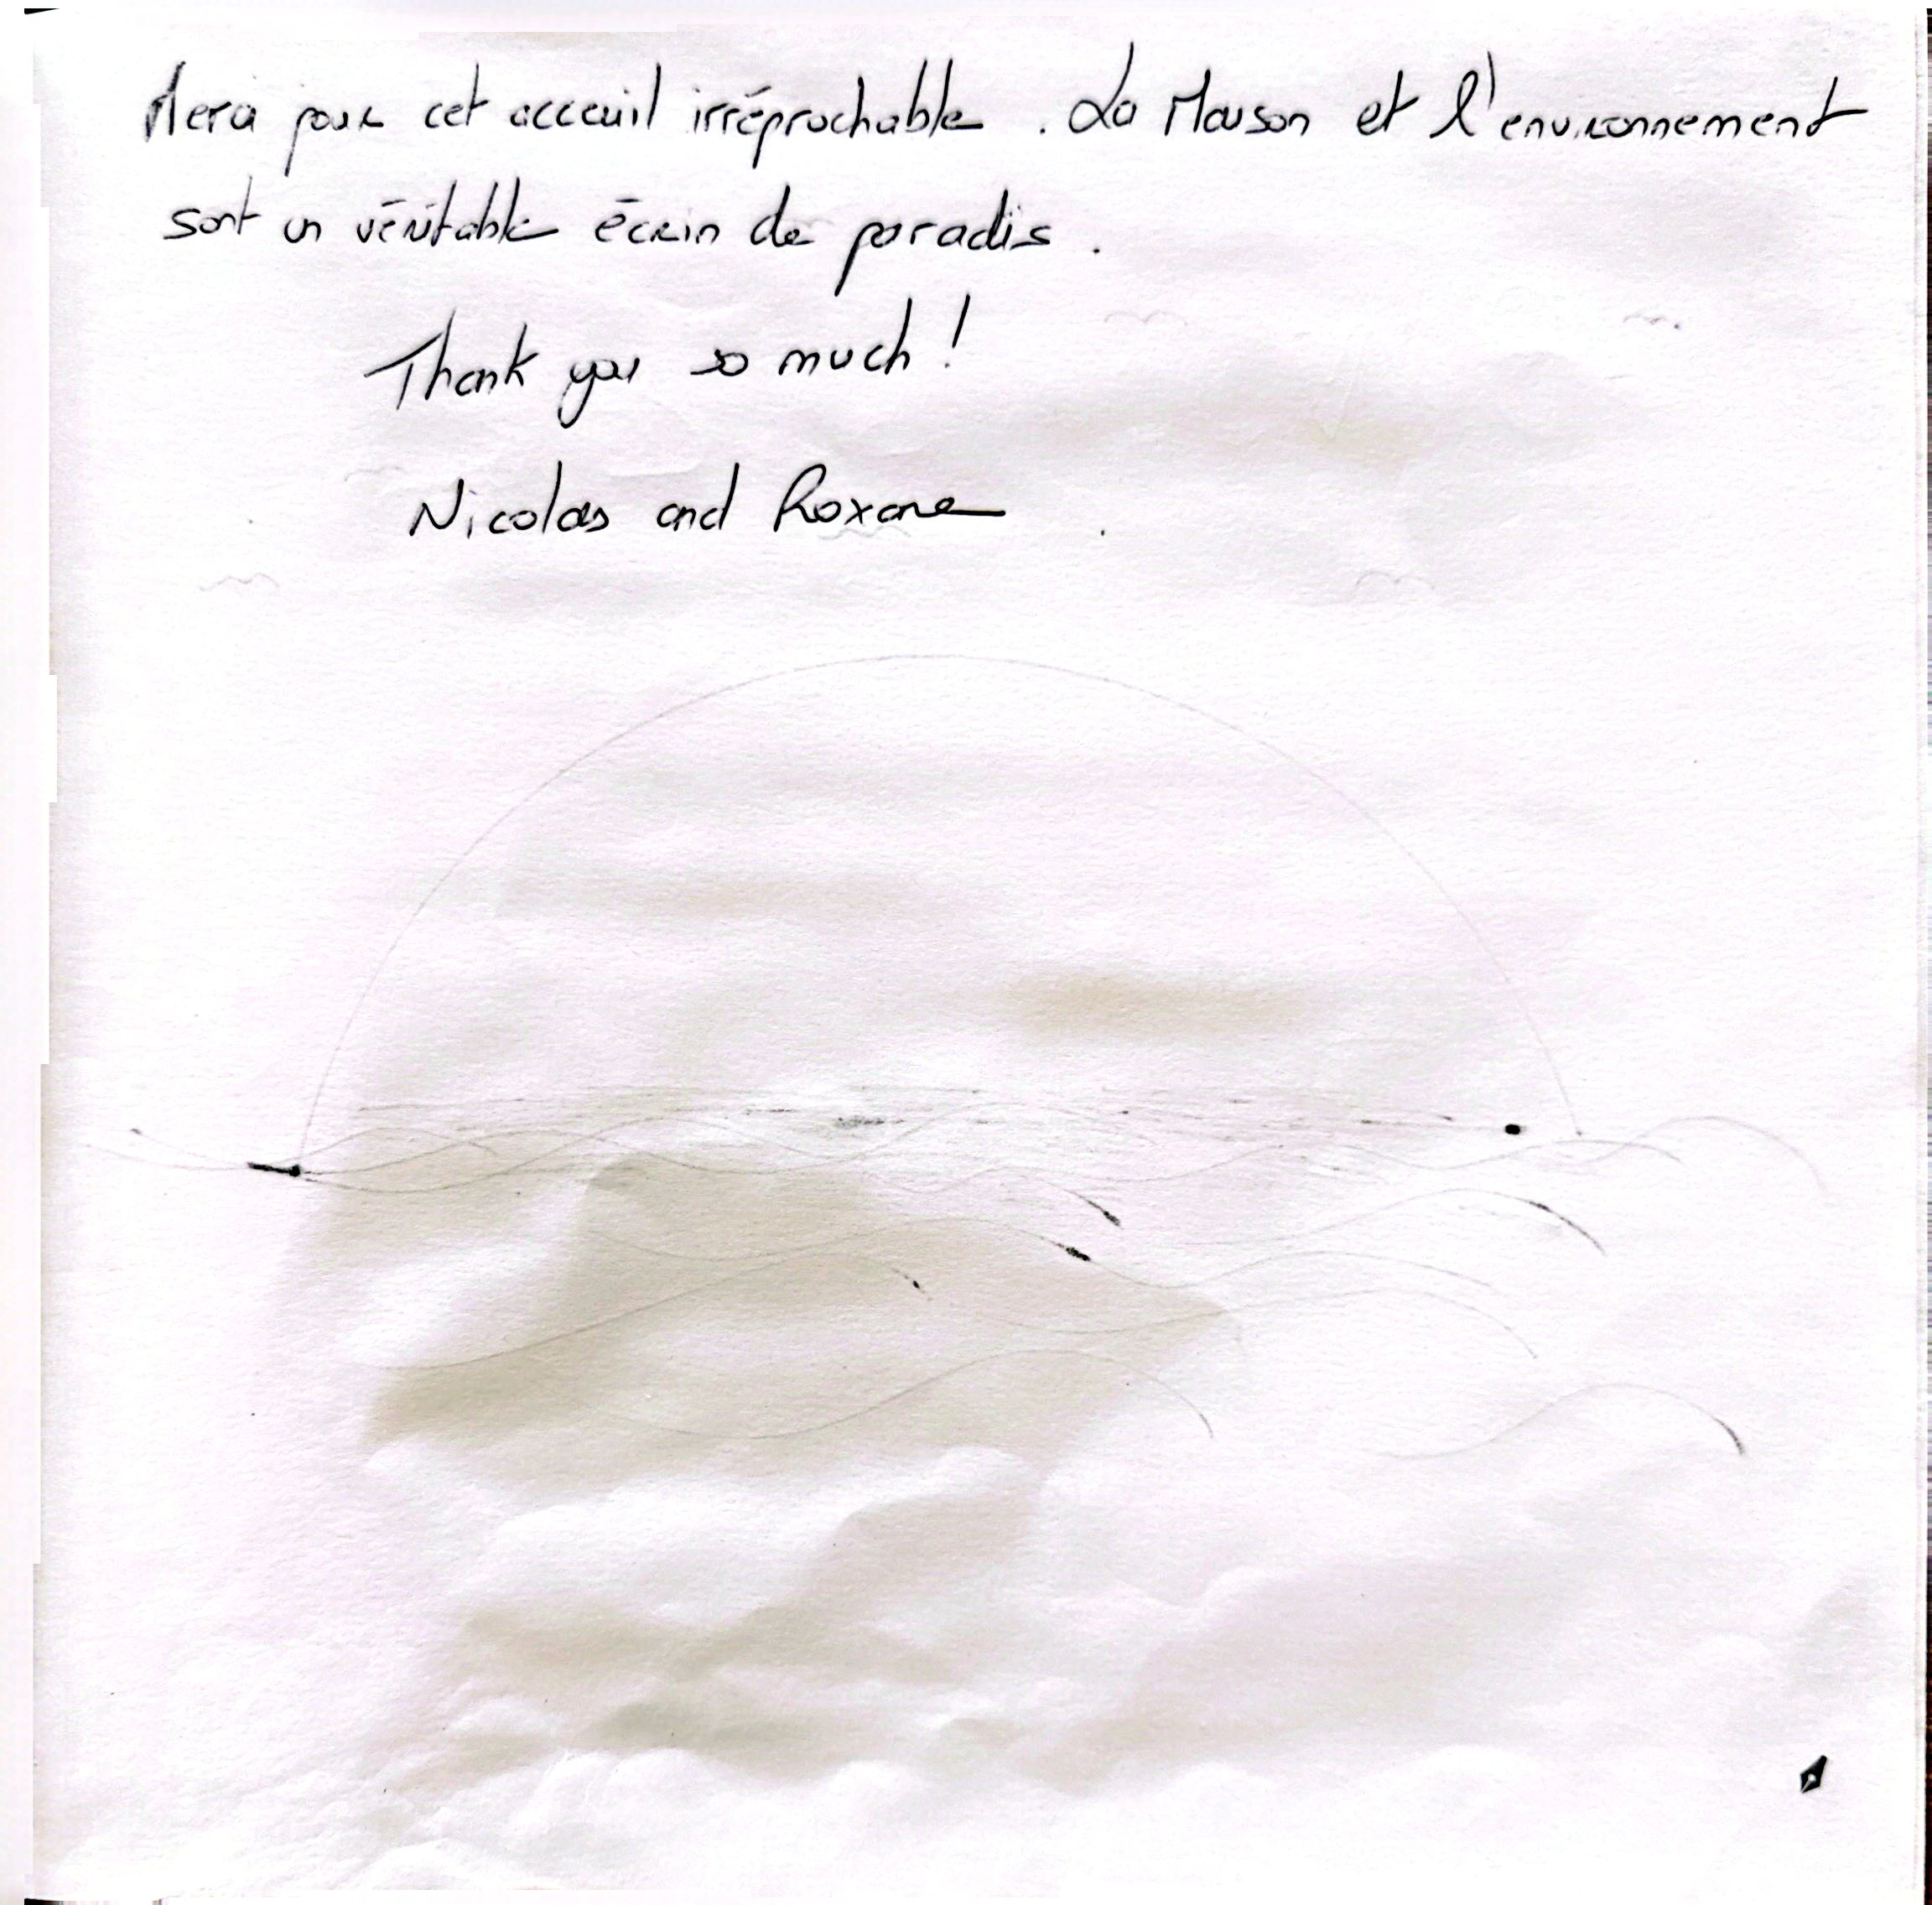 Merci pour cet acceuil irréprochable. La Maison et l'environnement
sont un véritable écrin de paradis.
Thank you so much!
Nicolas and Roxane